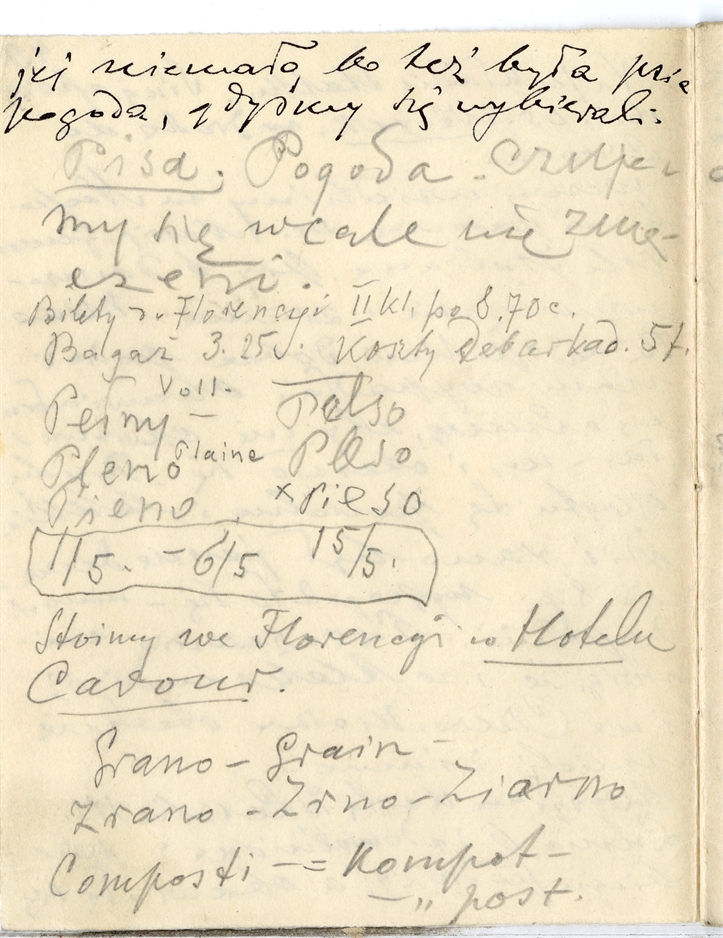 jej niemało, bo też była
pogoda, gdyśmy się wybierali.
Pisa. Pogoda. Czuje
my się wcale nie zmę-
czeni.
Bilety do Florencyi II kl. po 8.70 c.
Bagaż 3.25 Koszty Debarkad. 5 f.
Voll.
Pełny – Pelso
Pleno Plaine Pleso
Pieno x Pieso
1/5. – 6/5 15/5.
Stoimy we Florencyi w Hotelu
Cavour.
Grano – Grain –
Zrano – Zrno – Ziarno
Composti – = Kompot –
– „ post.